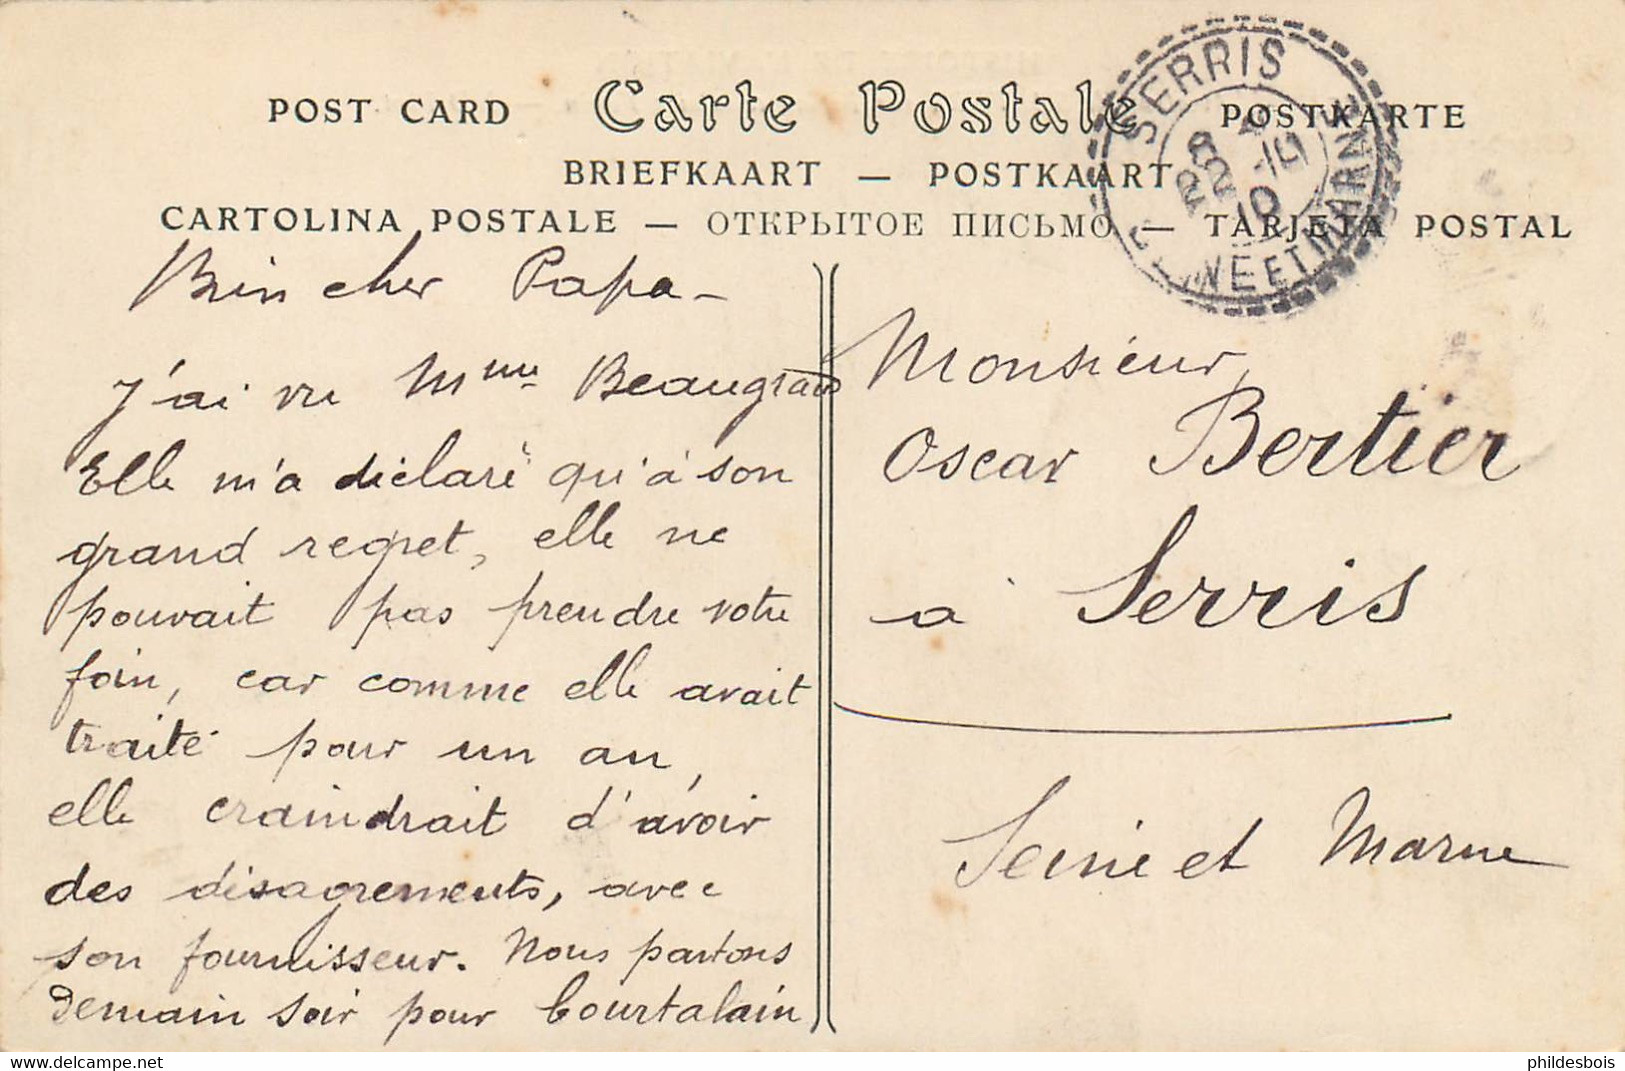 POST CARD Carte Postale POSTKARTE
BRIEFKAART — POSTKAART
CARTOLINA POSTALE — ОТКРЫТОЕ ПИСЬМО — TARJETA POSTAL
SERRIS
SEINE ET MARNE
10
Bien cher Papa –
J'ai vu Mme Beaugrand
Elle m'a déclaré qu'à son
grand regret, elle ne
pouvait pas prendre votre
foin, car comme elle avait
traité pour un an,
elle craindrait d'avoir
des désagrements, avec
son fournisseur. Nous partons
Demain soir pour Courtalain
Monsieur,
Oscar Bertier
à Serris
Seine et Marne
phildesbois